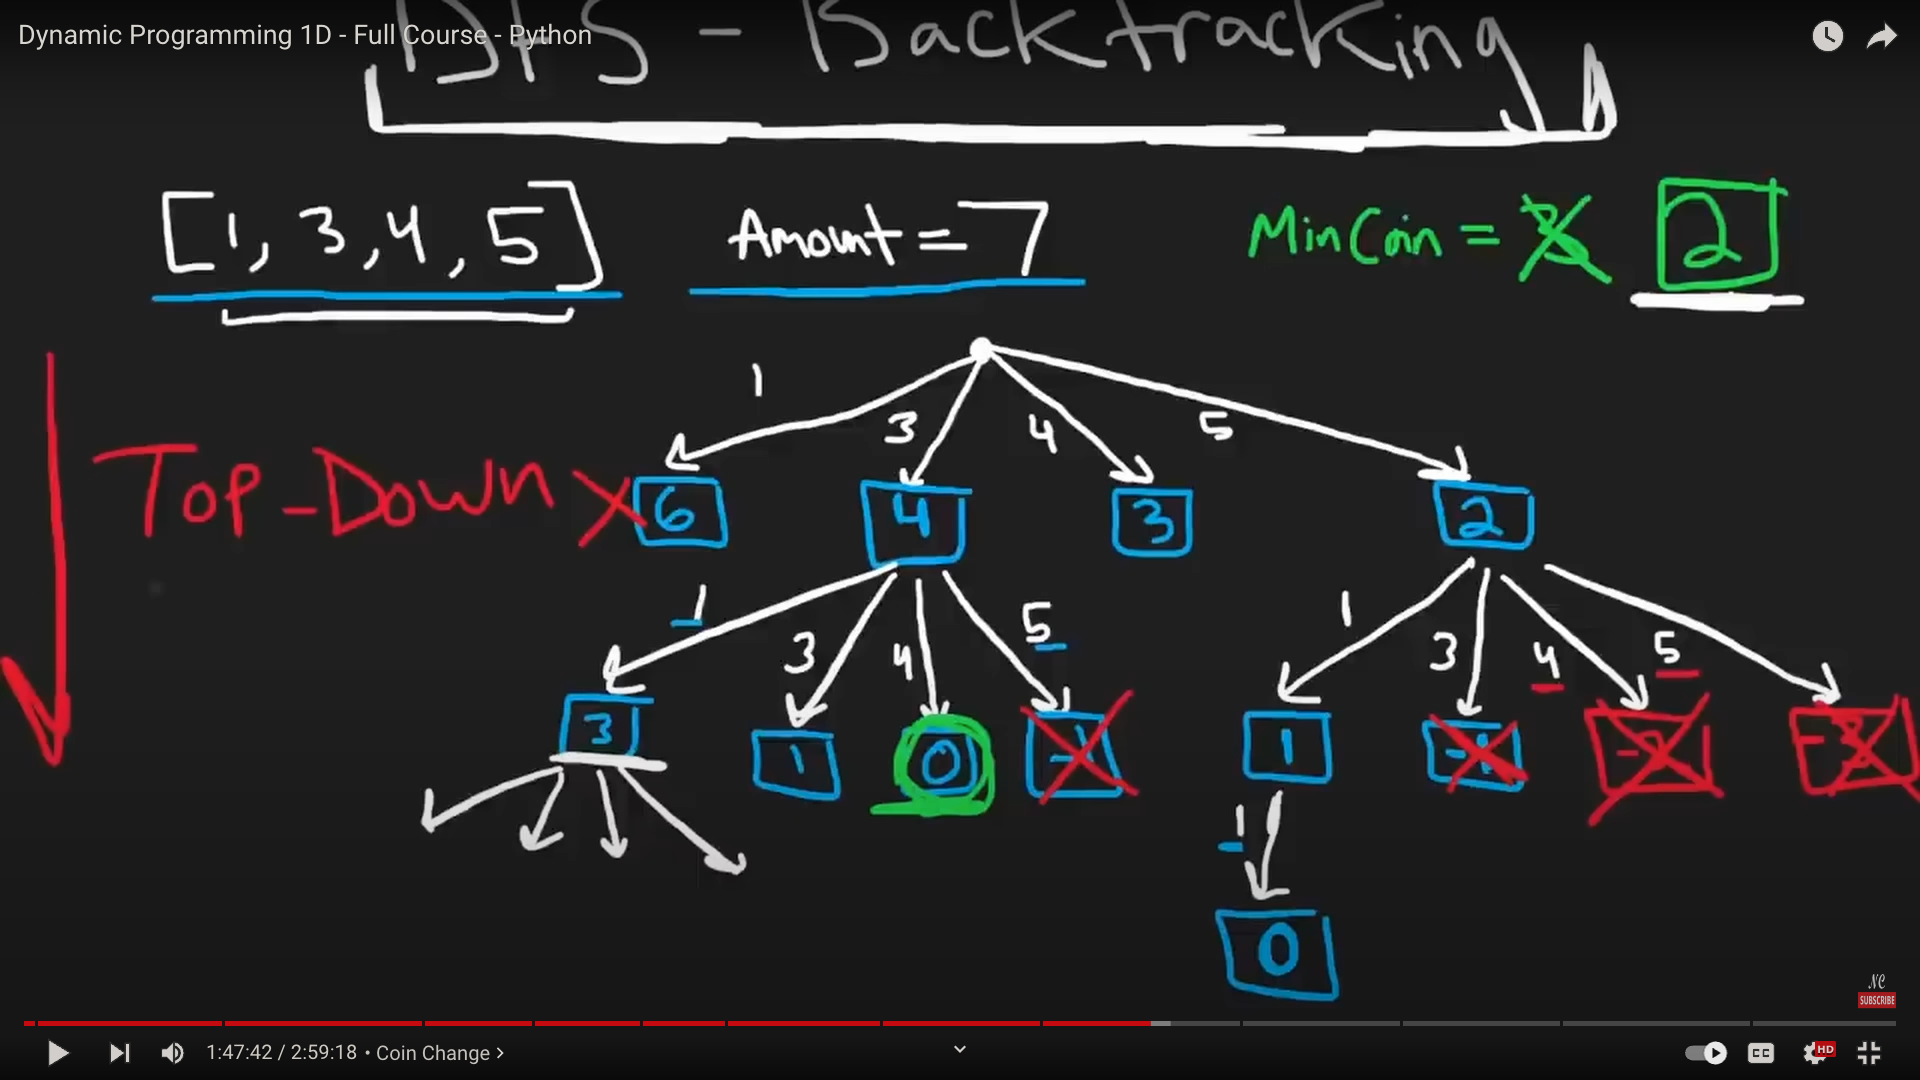 Dynamic Programming 1D - Full Course - Python
DFS - Backtracking
[1, 3, 4, 5] Amount = 7 MinCoin = 2
1 3 4 5
Top-Down
6 4 3 2
1 3 4 5 1 3 4 5
3 1 0 -1 1 -1 -2 -3
1
0
NC
SUBSCRIBE
1:47:42 / 2:59:18 • Coin Change
CC HD